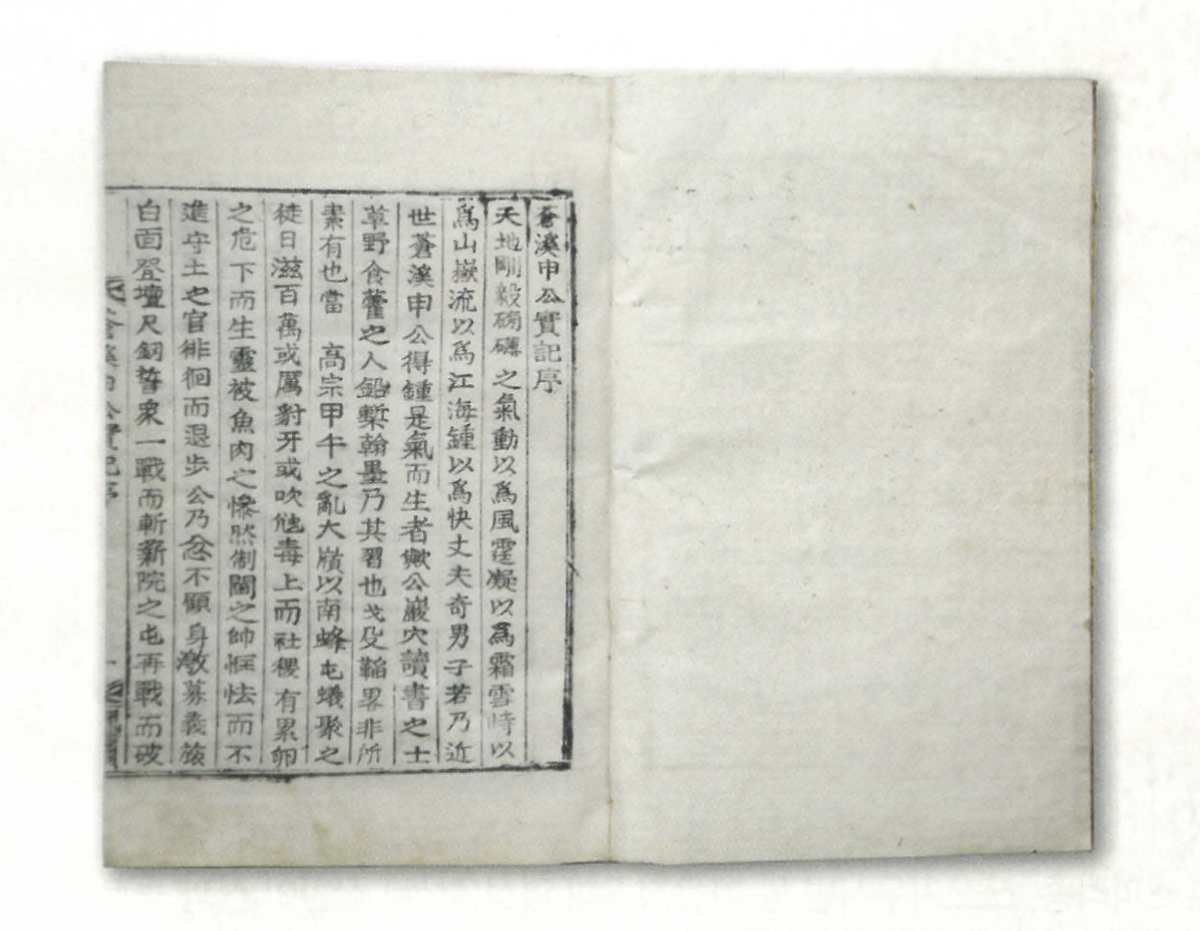 蒼溪申公實記序
天地剛毅磅礴之氣動以爲風霆凝以爲霜雪峙以
爲山嶽流以爲江海鍾以爲快丈夫奇男子若乃近
世蒼溪申公得鍾是氣而生者歟公巖穴讀書之士
草野食藿之人鉛槧翰墨乃其習也戈殳韜畧非所
素有也當 高宗甲午之亂大嶺以南蜂屯蟻聚之
徒日滋百萬或厲豺牙或吹虺毒上而社稷有累卵
之危下而生靈被魚肉之慘然制閫之帥恇怯而不
進守土之官徘徊而退步公乃忿不顧身激募義旅
白面登壇尺釰誓衆一戰而斬新院之屯再戰而破
蒼溪申公實記序 一